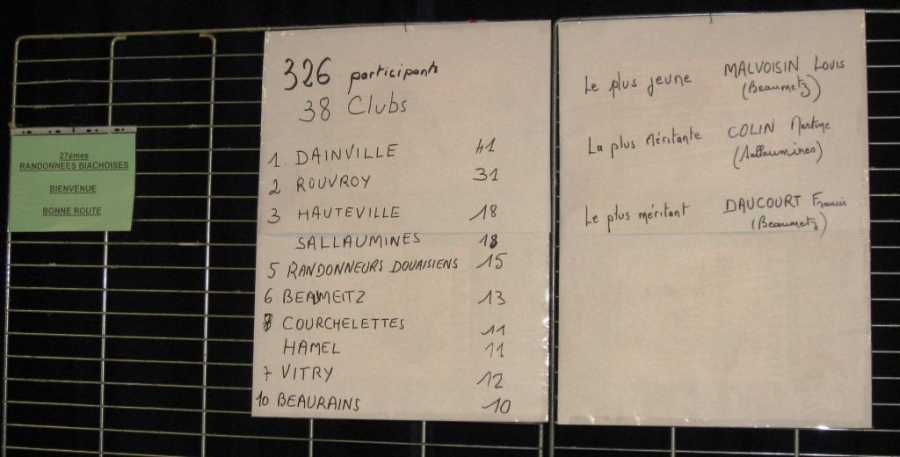 27èmes
RANDONNEES BIACHOISES
BIENVENUE
BONNE ROUTE
326 participants
38 Clubs
1 DAINVILLE 41
2 ROUVROY 31
3 HAUTEVILLE 18
SALLAUMINES 18
5 RANDONNEURS DOUAISIENS 15
6 BEAUMETZ 13
8 COURCHELETTES 11
HAMEL 11
7 VITRY 12
10 BEAURAINS 10
Le plus jeune MALVOISIN Louis
(Beaumetz)
La plus méritante COLIN Martine
(Sallaumines)
Le plus méritant DAUCOURT Francis
(Beaumetz)